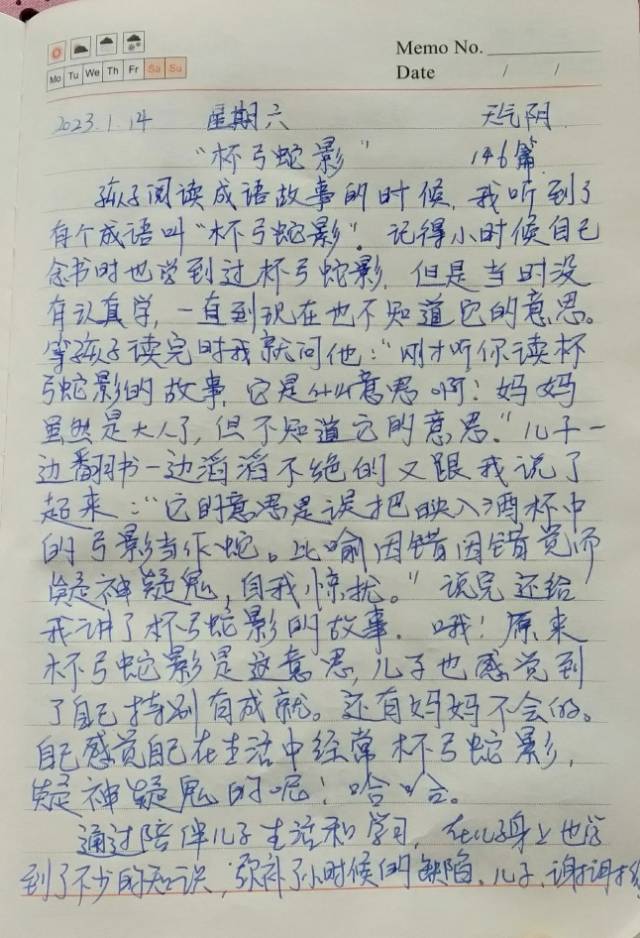 Memo No.
Mo Tu We Th Fr Sa Su
Date / /
2023.1.14 星期六 天气阴
“杯弓蛇影” 146篇
孩子阅读成语故事的时候,我听到了
有个成语叫“杯弓蛇影”。记得小时候自己
念书时也学到过杯弓蛇影,但是当时没
有认真学,一直到现在也不知道它的意思。
等孩子读完时我就问他:“刚才听你读杯
弓蛇影的故事,它是什么意思啊!妈妈
虽然是大人了,但不知道它的意思。”儿子一
边翻书一边滔滔不绝的又跟我说了
起来:“它的意思是误把映入酒杯中
的弓影当作蛇。比喻因错因错觉而
疑神疑鬼,自我惊扰。”说完还给
我讲了杯弓蛇影的故事.哦!原来
杯弓蛇影是这意思,儿子也感觉到
了自己特别有成就。还有妈妈不会的。
自己感觉自己在生活中经常杯弓蛇影,
疑神疑鬼的呢!哈哈。
通过陪伴儿子生活和学习,在儿子身上也学
到了不少的知识,弥补了小时候的缺陷。儿子,谢谢